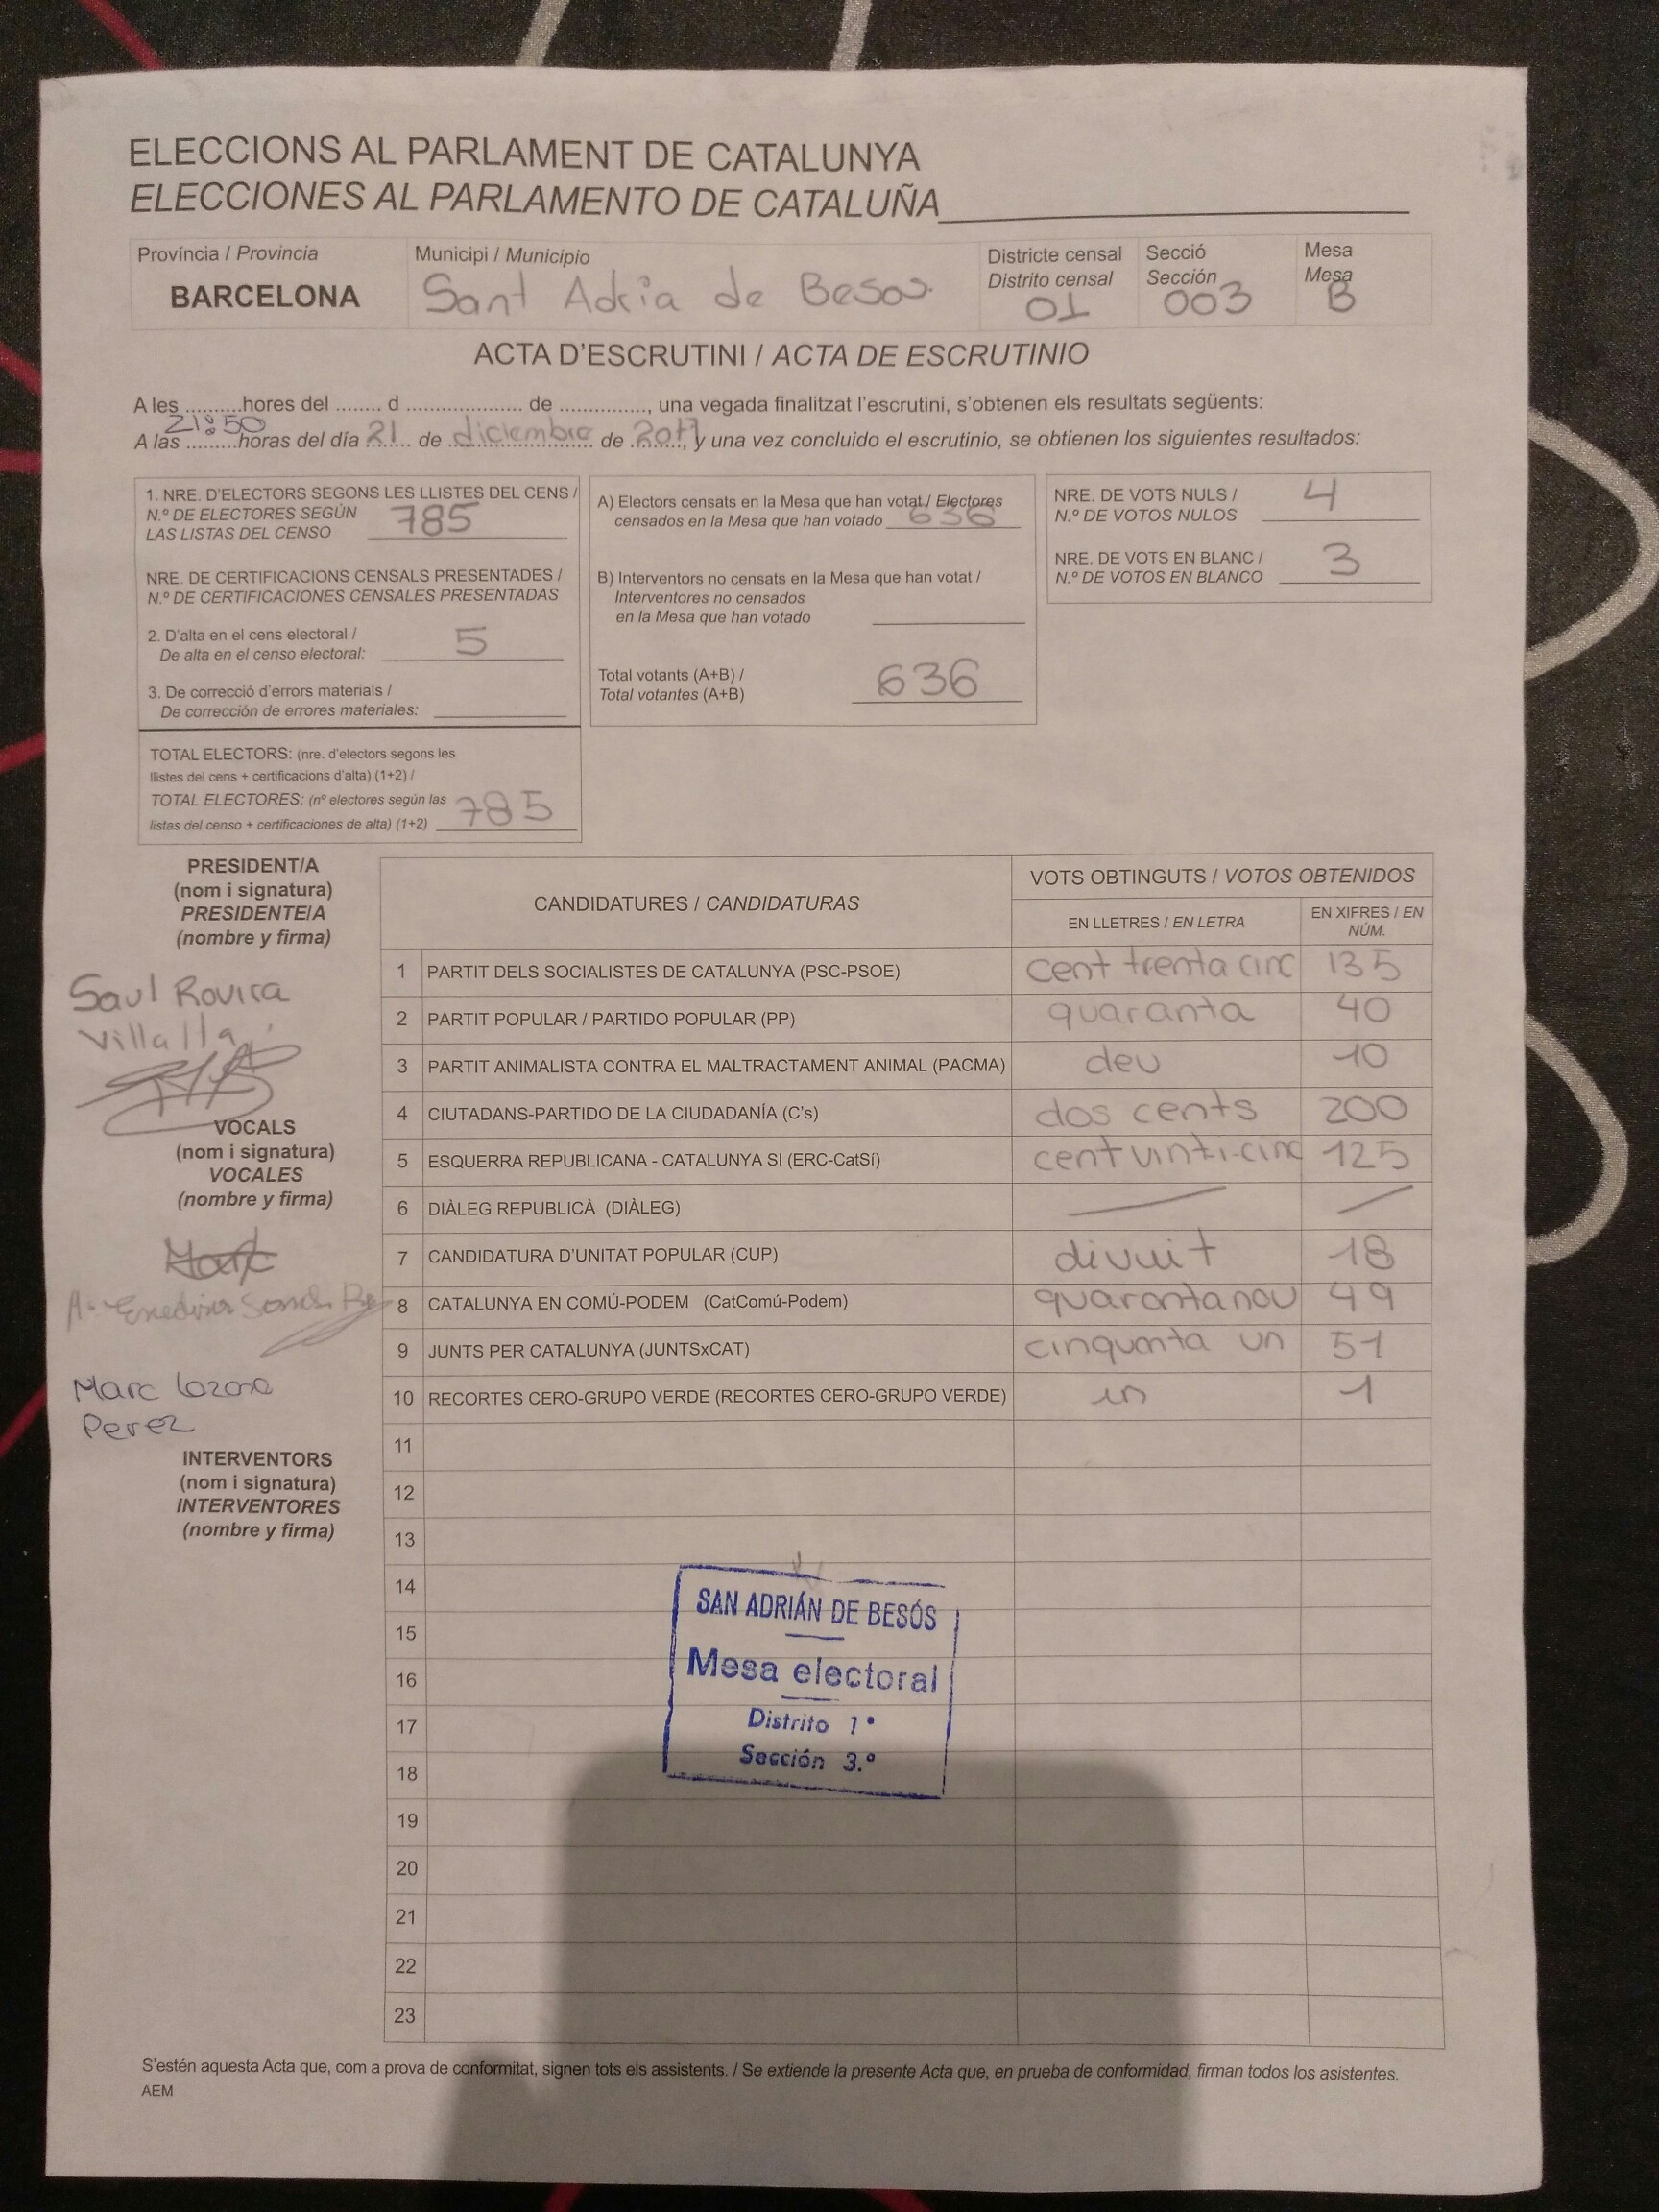 ELECCIONS AL PARLAMENT DE CATALUNYA
ELECCIONES AL PARLAMENTO DE CATALUÑA
Província / Provincia
BARCELONA
Municipi / Municipio
Sant Adria de Besos.
Districte censal
Distrito censal
01
Secció
Sección
003
Mesa
Mesa
B
ACTA D'ESCRUTINI / ACTA DE ESCRUTINIO
A les ..........hores del ........ d ..................... de ..............., una vegada finalitzat l'escrutini, s'obtenen els resultats següents:
A las 21:50 horas del día 21 de diciembre de 2017, y una vez concluido el escrutinio, se obtienen los siguientes resultados:
1. NRE. D'ELECTORS SEGONS LES LLISTES DEL CENS /
N.º DE ELECTORES SEGÚN
LAS LISTAS DEL CENSO 785
NRE. DE CERTIFICACIONS CENSALS PRESENTADES /
N.º DE CERTIFICACIONES CENSALES PRESENTADAS
2. D'alta en el cens electoral /
De alta en el censo electoral: 5
3. De correcció d'errors materials /
De corrección de errores materiales:
TOTAL ELECTORS: (nre. d'electors segons les
llistes del cens + certificacions d'alta) (1+2) /
TOTAL ELECTORES: (nº electores según las
listas del censo + certificaciones de alta) (1+2) 785
A) Electors censats en la Mesa que han votat / Electores
censados en la Mesa que han votado 636
B) Interventors no censats en la Mesa que han votat /
Interventores no censados
en la Mesa que han votado
Total votants (A+B) /
Total votantes (A+B) 636
NRE. DE VOTS NULS /
N.º DE VOTOS NULOS 4
NRE. DE VOTS EN BLANC /
N.º DE VOTOS EN BLANCO 3
PRESIDENT/A
(nom i signatura)
PRESIDENTE/A
(nombre y firma)
Saul Rovira
Villalta
VOCALS
(nom i signatura)
VOCALES
(nombre y firma)
Marc
Marc Lozano
Perez
INTERVENTORS
(nom i signatura)
INTERVENTORES
(nombre y firma)
CANDIDATURES / CANDIDATURAS
VOTS OBTINGUTS / VOTOS OBTENIDOS
EN LLETRES / EN LETRA
EN XIFRES / EN
NÚM.
1 PARTIT DELS SOCIALISTES DE CATALUNYA (PSC-PSOE) cent trenta cinc 135
2 PARTIT POPULAR / PARTIDO POPULAR (PP) quaranta 40
3 PARTIT ANIMALISTA CONTRA EL MALTRACTAMENT ANIMAL (PACMA) deu 10
4 CIUTADANS-PARTIDO DE LA CIUDADANÍA (C's) dos cents 200
5 ESQUERRA REPUBLICANA - CATALUNYA SI (ERC-CatSí) cent vinti-cinc 125
6 DIÀLEG REPUBLICÀ (DIÀLEG)
7 CANDIDATURA D'UNITAT POPULAR (CUP) divuit 18
8 CATALUNYA EN COMÚ-PODEM (CatComú-Podem) quarantanou 49
9 JUNTS PER CATALUNYA (JUNTSxCAT) cinquanta un 51
10 RECORTES CERO-GRUPO VERDE (RECORTES CERO-GRUPO VERDE) un 1
11
12
13
14
15
16
17
18
19
20
21
22
23
SAN ADRIÁN DE BESÓS
Mesa electoral
Distrito 1º
Sección 3.º
S'estén aquesta Acta que, com a prova de conformitat, signen tots els assistents. / Se extiende la presente Acta que, en prueba de conformidad, firman todos los asistentes.
AEM